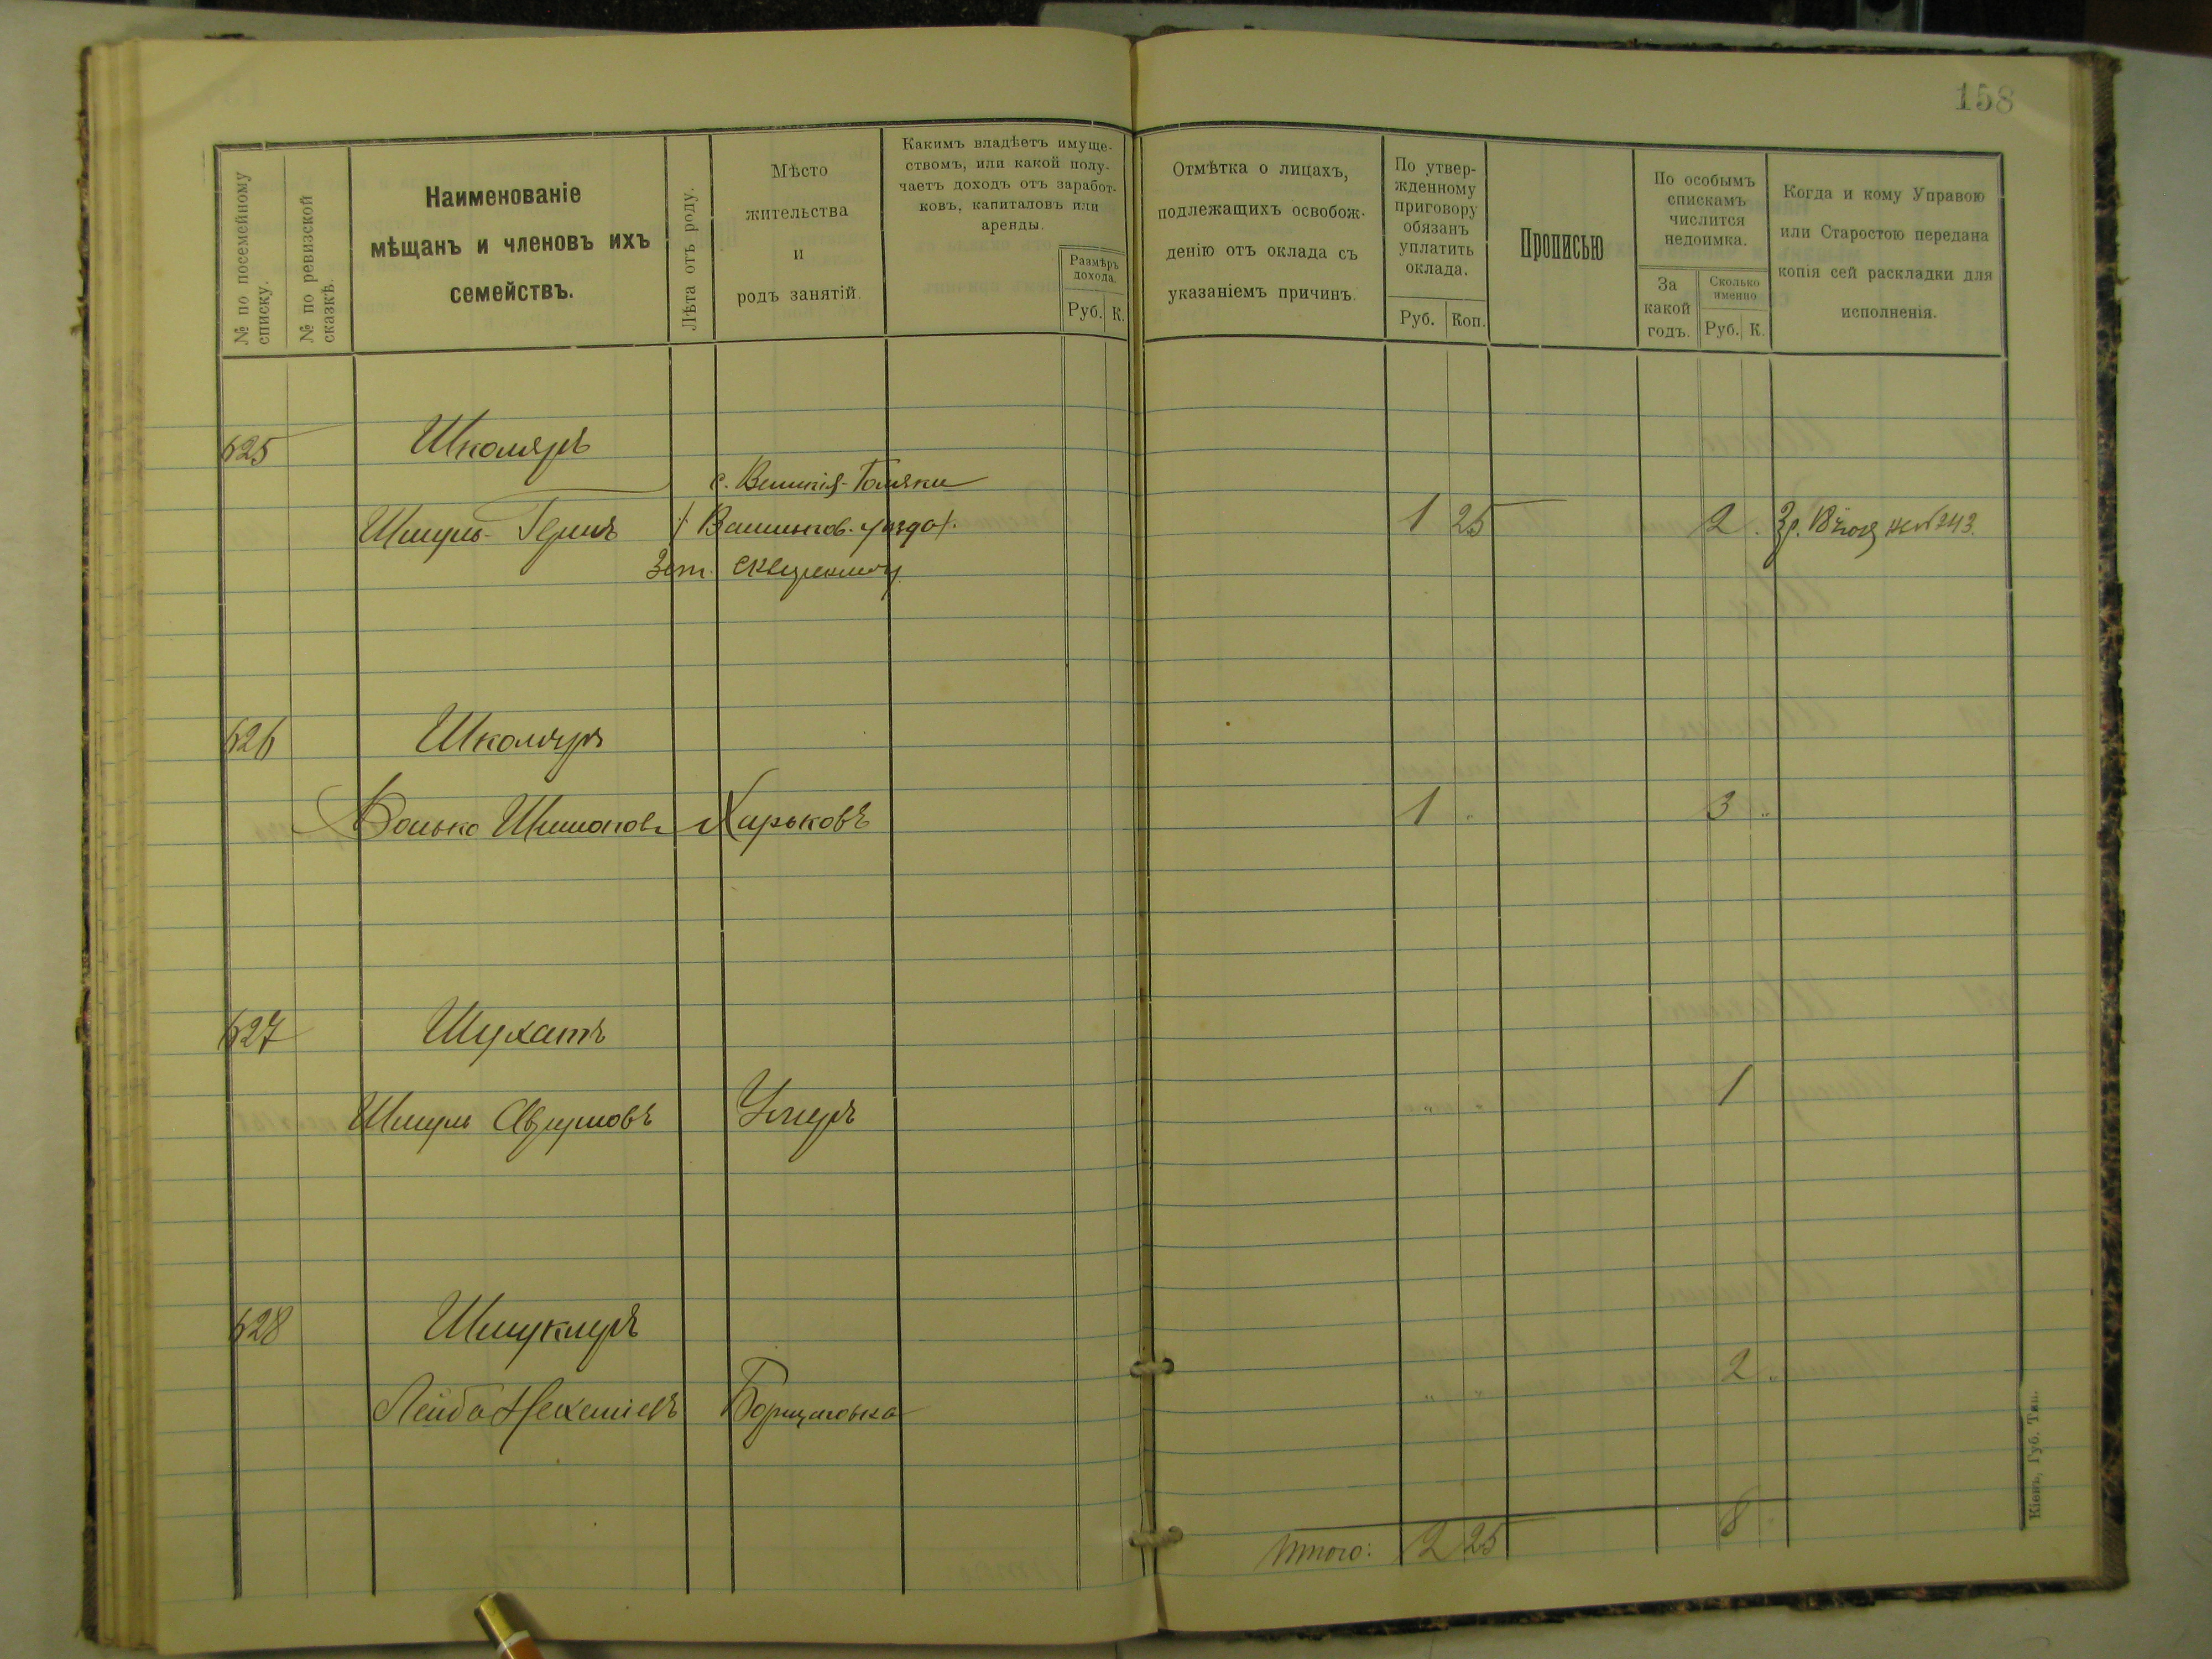 158
№ по посемейному списку.
№ по ревизской сказкѣ.
Наименованіе
мѣщанъ и членовъ ихъ
семействъ.
Лѣта отъ роду.
Мѣсто
жительства
и
родъ занятій.
Какимъ владѣетъ имуще-
ствомъ, или какой полу-
чаетъ доходъ отъ заработ-
ковъ, капиталовъ или
аренды.
Размѣръ
дохода.
Руб. К.
Отмѣтка о лицахъ,
подлежащихъ освобож-
денію отъ оклада съ
указаніемъ причинъ.
По утвер-
жденному
приговору
обязанъ
уплатить
оклада.
Руб. Коп.
Прописью
По особымъ
спискамъ
числится
недоимка.
За
какой
годъ.
Сколько
именно
Руб. К.
Когда и кому Управою
или Старостою передана
копія сей раскладки для
исполненія.
625 Школяръ
с. Великія-
Шмуль-Гершъ 1 25 2 3р.
626 Школяръ
Волько Шимонов Харьковъ 1 " 3 "
627 Шухатъ
Шмуль Аврумовъ Умеръ " 1
628 Шмуклеръ
Лейба Борщаговка " " 2 "
Итого: 2 25 8
Кіевъ, Губ. Тип.